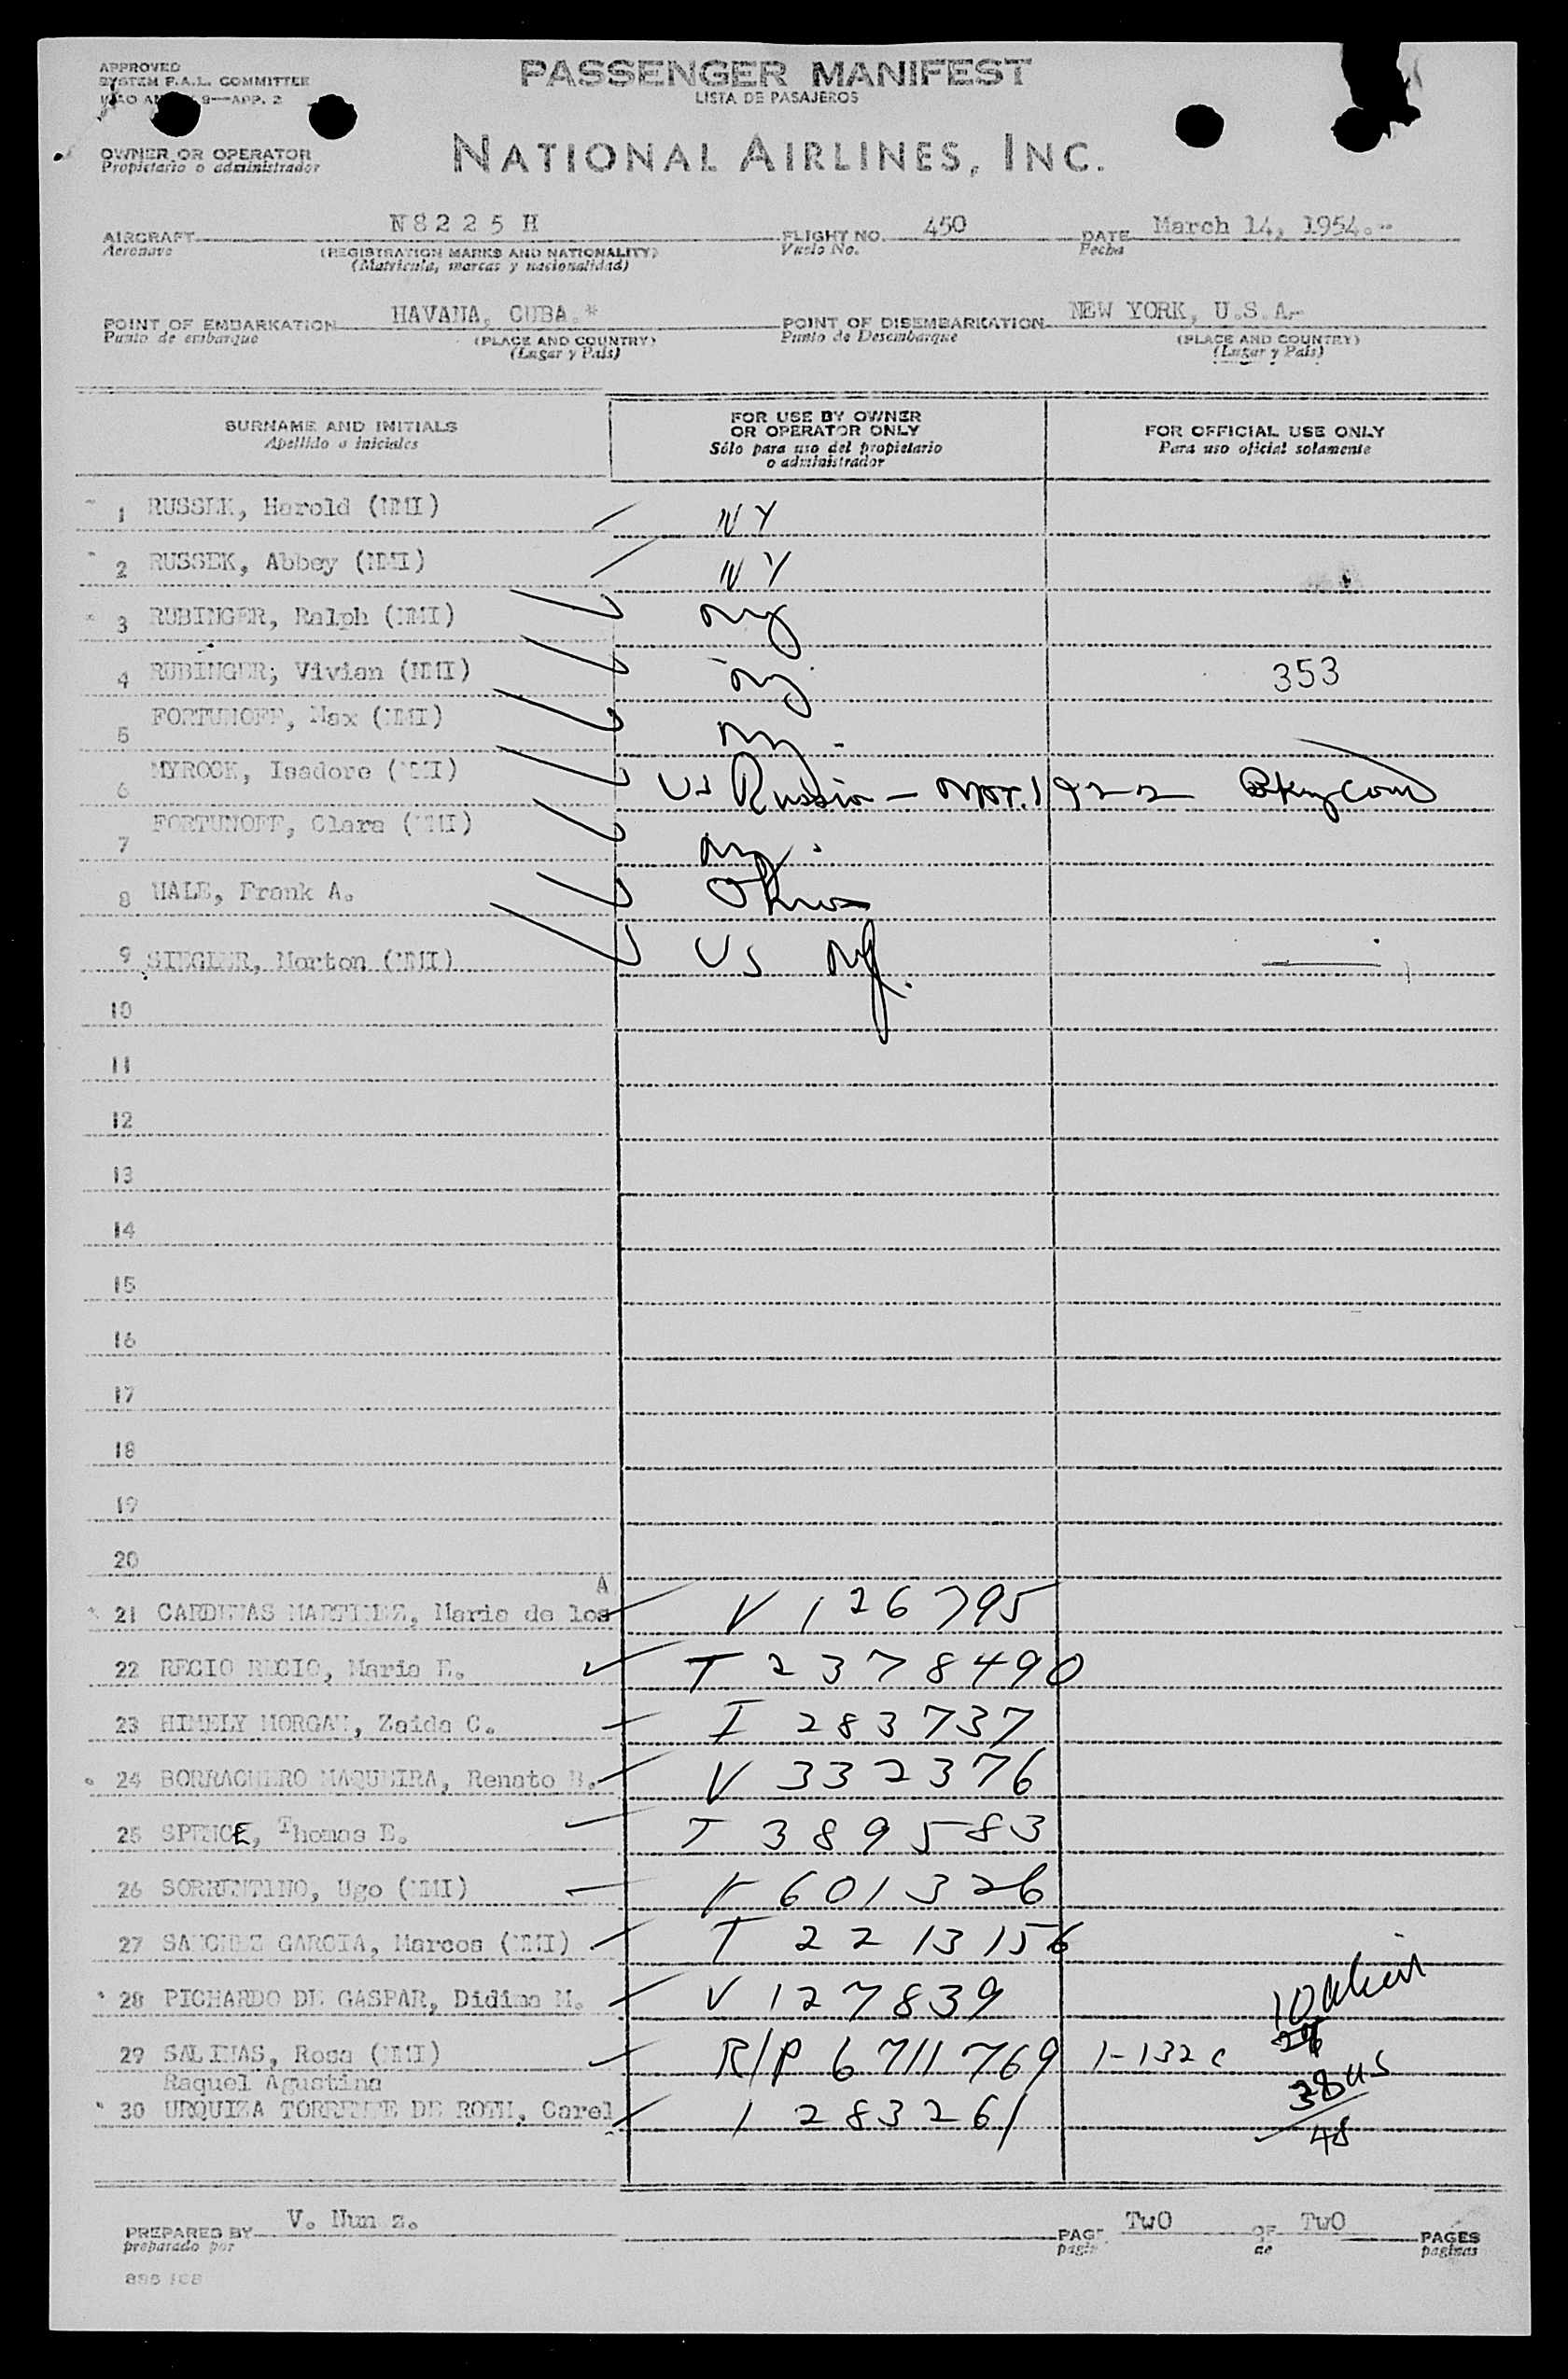 APPROVED
SYSTEM F.A.L. COMMITTEE
9—APP. 2
PASSENGER MANIFEST
LISTA DE PASAJEROS
OWNER OR OPERATOR
Propietario o administrador
NATIONAL AIRLINES, INC.
AIRCRAFT N8225H FLIGHT NO. 450 DATE March 14, 1954.-
Aeronave (REGISTRATION MARKS AND NATIONALITY) Vuelo No. Fecha
(Matrícula, marcas y nacionalidad)
POINT OF EMBARKATION HAVANA, CUBA.* POINT OF DISEMBARKATION NEW YORK, U.S.A.-
Punto de embarque (PLACE AND COUNTRY) Punto de Desembarque (PLACE AND COUNTRY)
(Lugar y País) (Lugar y País)
SURNAME AND INITIALS
Apellido o iniciales
FOR USE BY OWNER
OR OPERATOR ONLY
Sólo para uso del propietario
o administrador
FOR OFFICIAL USE ONLY
Para uso oficial solamente
1 RUSSEK, Harold (NMI) NY
2 RUSSEK, Abbey (NMI) NY
3 RUBINGER, Ralph (NMI) NY
4 RUBINGER; Vivian (NMI) NY 353
5 FORTUNOFF, Max (NMI) NY
6 MYROCK, Isadore (NMI) US Russia - 1922
7 FORTUNOFF, Clara (NMI) NY.
8 HALE, Frank A. Ohio
9 SIEGLER, Morton (NMI) US
10
11
12
13
14
15
16
17
18
19
20
A
21 CARDENAS MARTINEZ, Maria de los V 126795
22 RECIO RECIO, Maria E. T 2378490
23 HIMELY MORGAN, Zaida C. I 283737
24 BORRACHERO MAQUEIRA, Renato B. V 332376
25 SPENCE, Thomas E. T 389583
26 SORRENTINO, Ugo (NMI) 601326
27 SANCHEZ GARCIA, Marcos (NMI) T 2213156
28 PICHARDO DE GASPAR, Didima M. V 127839 10 alien
29 SALINAS, Rosa (NMI) R/P 6711769 1-132c
Raquel Agustina 38 US
30 URQUIZA TORRIENTE DE ROTH, Carel I 283261 48
PREPARED BY V. Nun z. PAGE TwO OF TwO PAGES
preparado por página de páginas